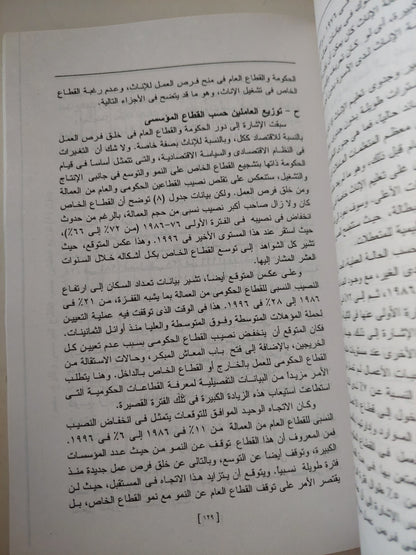 الحكومة والقطاع العام فى منح فرص العمل للإناث، وعدم رغبة القطاع
الخاص فى تشغيل الإناث، وهو ما قد يتضح فى الأجزاء التالية.
ح – توزيع العاملين حسب القطاع المؤسسى
سبقت الإشارة إلى دور الحكومة والقطاع العام فى خلق فرص العمل
بالنسبة للاقتصاد ككل، وبالنسبة للإناث بصفة خاصة. ولا شك أن التغيرات
فى النظام الاقتصادى والسياسة الاقتصادية، والتى تتمثل أساسا فى قيام
الحكومة ذاتها بتشجيع القطاع الخاص على النمو والتوسع فى جانبى الإنتاج
والتشغيل، ستنعكس على تقلص نصيب القطاعين الحكومى والعام من العمالة
ومن خلق فرص العمل. ولكن بيانات جدول (٨) توضح أن القطاع الخاص
كان ولا زال صاحب أكبر نصيب نسبى من حجم العمالة، بالرغم من حدوث
انخفاض فى نصيبه فى الفترة الأولى ٧٦–١٩٨٦ (من ٧٢٪ إلى ٦٦٪)،
حيث استقر عند هذا المستوى الأخير فى ١٩٩٦. وهذا عكس المتوقع، حيث
تشير كل الشواهد إلى توسع القطاع الخاص بكل أشكاله خلال السنوات
العشر المشار إليها.
وعلى عكس المتوقع أيضاً، تشير بيانات تعداد السكان إلى ارتفاع
النصيب النسبى للقطاع الحكومى من العمالة بما يشبه القفزة، من ٢١٪ فى
١٩٨٦ إلى ٢٨٪ فى ١٩٩٦. هذا فى الوقت الذى توقفت فيه عملية التعيين
لحملة المؤهلات المتوسطة وفوق المتوسطة والعليا منذ أوائل الثمانينات.
فكان المتوقع أن ينخفض نصيب القطاع الحكومى بسبب عدم تعيين كل
الخريجين، بالإضافة إلى فتح باب المعاش المبكر، وحالات الاستقالة من
القطاع الحكومى للعمل بالخارج أو القطاع الخاص بالداخل. وهنا يتطلب
الأمر مزيداً من البيانات التفصيلية لمعرفة القطاعات الحكومية التى
استطاعت استيعاب هذه الزيادة الكبيرة فى تلك الفترة القصيرة.
وكان الاتجاه الوحيد الموافق للتوقعات يتمثل فى انخفاض النصيب
النسبى للقطاع العام من العمالة من ١١٪ فى ١٩٨٦ إلى ٦٪ فى ١٩٩٦.
فمن المعروف أن هذا القطاع توقف عن النمو من حيث عدد المؤسسات
الكبيرة، وتوقف أيضاً عن التوسع، وبالتالى عن خلق فرص عمل جديدة منذ
فترة طويلة نسبياً. ويتوقع أن يتزايد هذا الاتجاه فى المستقبل، حيث لن
يقتصر الأمر على توقف القطاع العام عن النمو مع نمو القطاع الخاص، بل
[ ١٢٩ ]